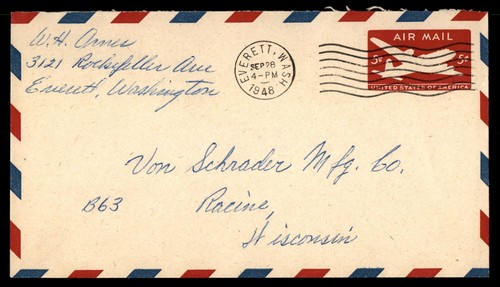 W.H. Ames
3121 Rockefeller Ave
Everett, Washington
EVERETT, WASH.
SEP 28
4-PM
1948
AIR MAIL
5¢ 5¢
UNITED STATES OF AMERICA
Von Schrader Mfg. Co.
B63
Racine,
Wisconsin